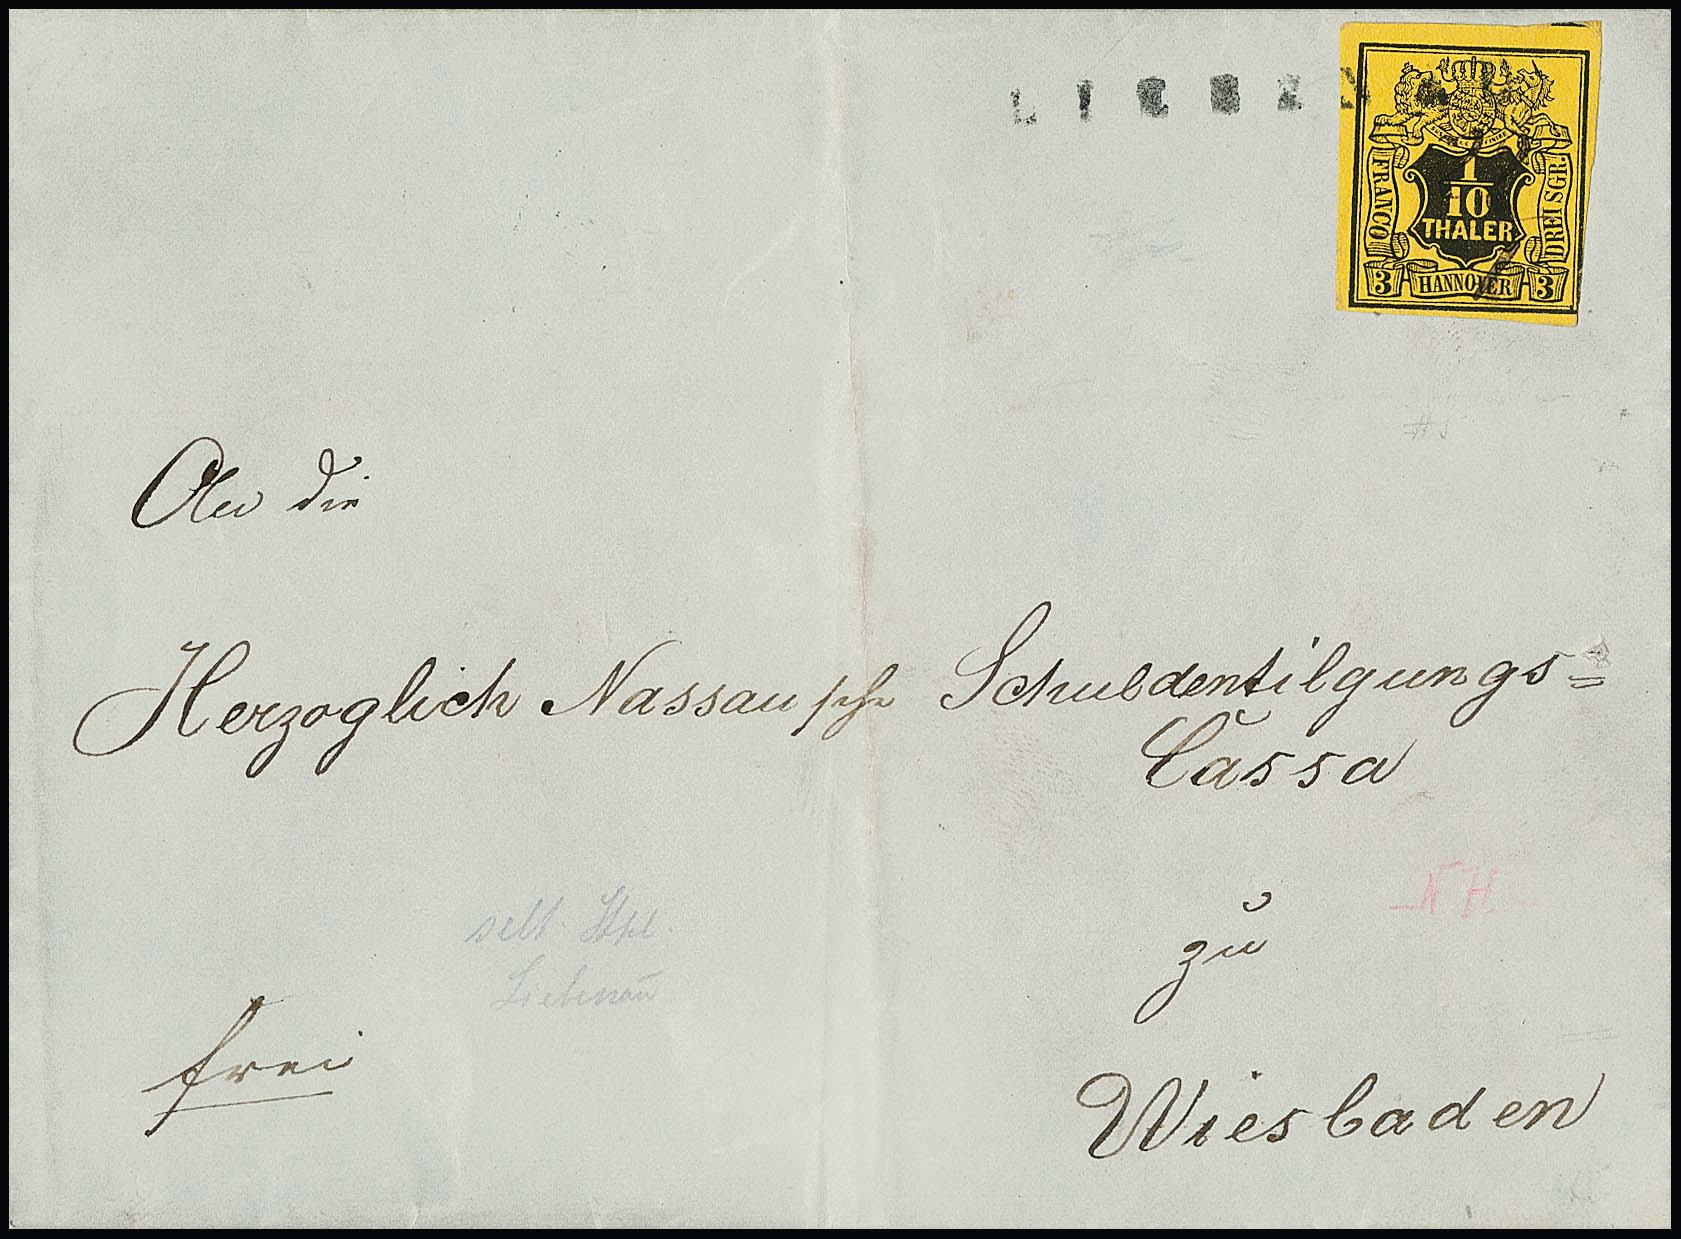 LIEBENAU
FRANCO
1/10
THALER
DREI SGR.
3 HANNOVER 3
# 5
An die
Herzoglich Nassausche Schuldentilgungs=
Cassa
NH
zu
selt. Stpl.
Liebenau
frei
Wiesbaden